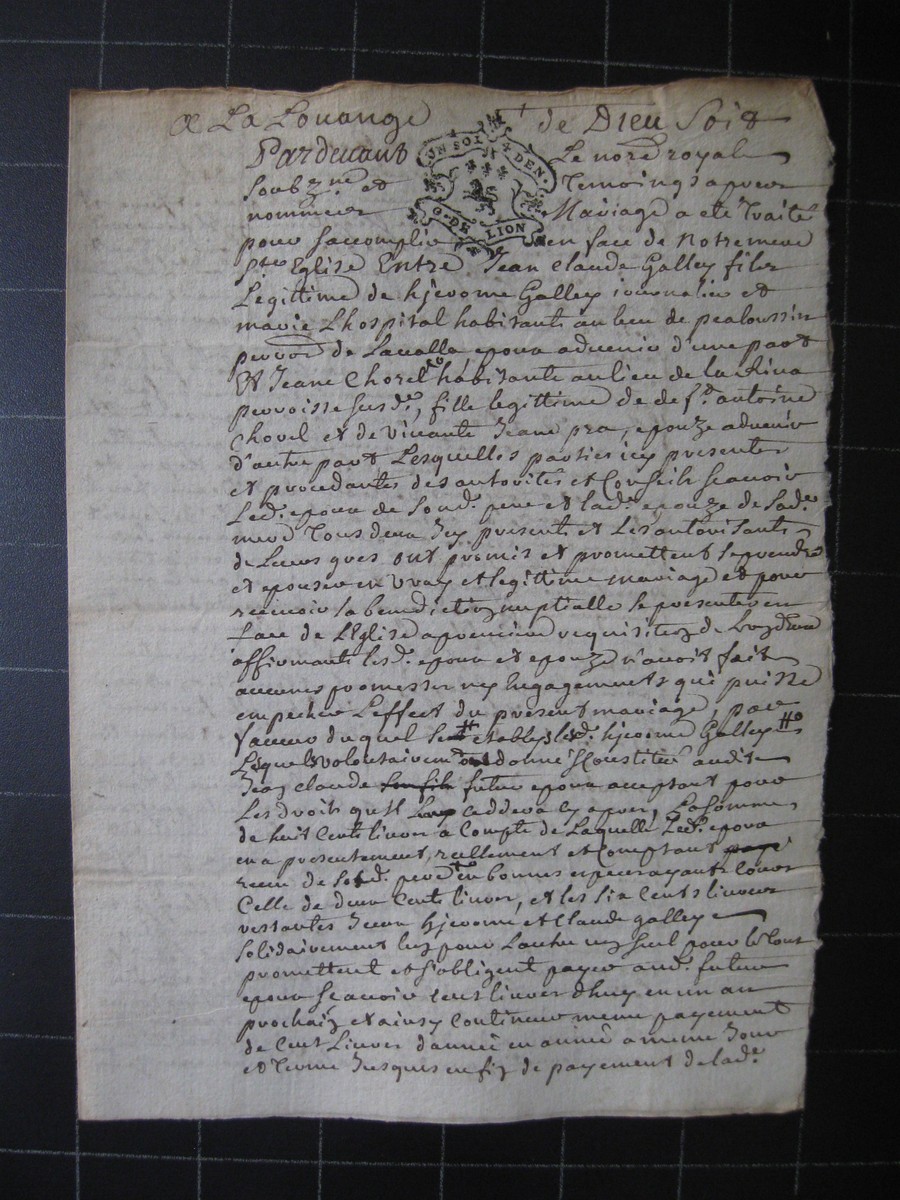 A La Louange de Dieu Soit
Pardevant Le nore royal
Soubzné et Temoings apres
nommees Mariage a eté Traité
UN SOL 4 DEN.
G. DE LION
pour saccomplir en face de Notre mere
Ste Eglise Entre Jean Claude Galley filz
Legittime de hjerome Galley journalier et
marie Lhospital habitants au lieu de pealoussin
parroe de Lavalla epoux advenir d'une part
Et Jeane Chorel habitante au lieu de la Rina
perroisse susde, fille legittime de deft antoine
Chorel et de vivante Jeane pra, epouze advenir
d'autre part Lesquelles parties icy presentes
et procedantes des autorités et Conseils scavoir
Led. epoux de sond. pere et lad. epouze de sade
mere Tous deux Icy presents et Les autorisants
de Leurs gres ont promis et promettent se prendre
et epouser en vray et legittime mariage et pour
recevoir la benediction nuptialle se presenter en
face de L'Eglise a premiere requisition de Lun Deux
affirmants lesd. epoux et epouze n'avoir fait
aucunes promesses ny Engagements qui puisse
empecher L'effect du present mariage, par
faveur duquel etably led. hjerome Galley
Lequel volontairemt donne Constitué audit
Jean claude son fils futur epoux acceptant pour
Les droits quil cy apres, La somme
de huit Cents livres a Compte de Laquelle Led. epoux
en a presentement, reellement et Comptant
receu de sond. pere en bonnes especes ayants cours
Celle de deux Cents livres, et les six Cents livres
restantes Jceux hjerome et Claude galley
solidairement luy pour Lautre un seul pour le tout
promettent et s'obligent payer aud. futur
epoux scavoir cent livres dhuy en un an
prochain et ainsy Continuer meme payement
de Cent Livres d'année en année a meme Jour
et Terme Jusques en fin de payement de lade